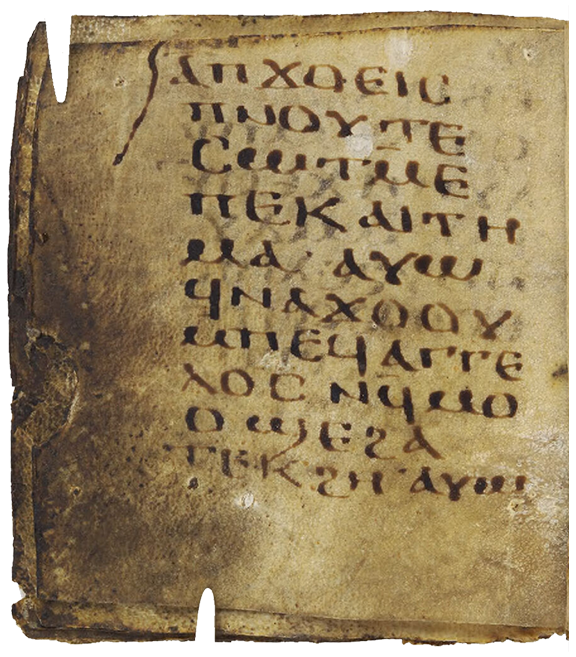 ⲁⲡϫⲟⲉⲓⲥ
ⲡⲛⲟⲩⲧⲉ
ⲥⲱⲧⲙⲉ
ⲡⲉⲕⲁⲓⲧⲏ
ⲙⲁ· ⲁⲩⲱ
ϥⲛⲁϫⲟⲟⲩ
ⲙⲡⲉϥⲁⲅⲅⲉ
ⲗⲟⲥ ⲛϥⲙⲟ
ⲟϣⲉϩⲁ
ⲧⲉⲕϩⲏ ⲁⲩⲱ